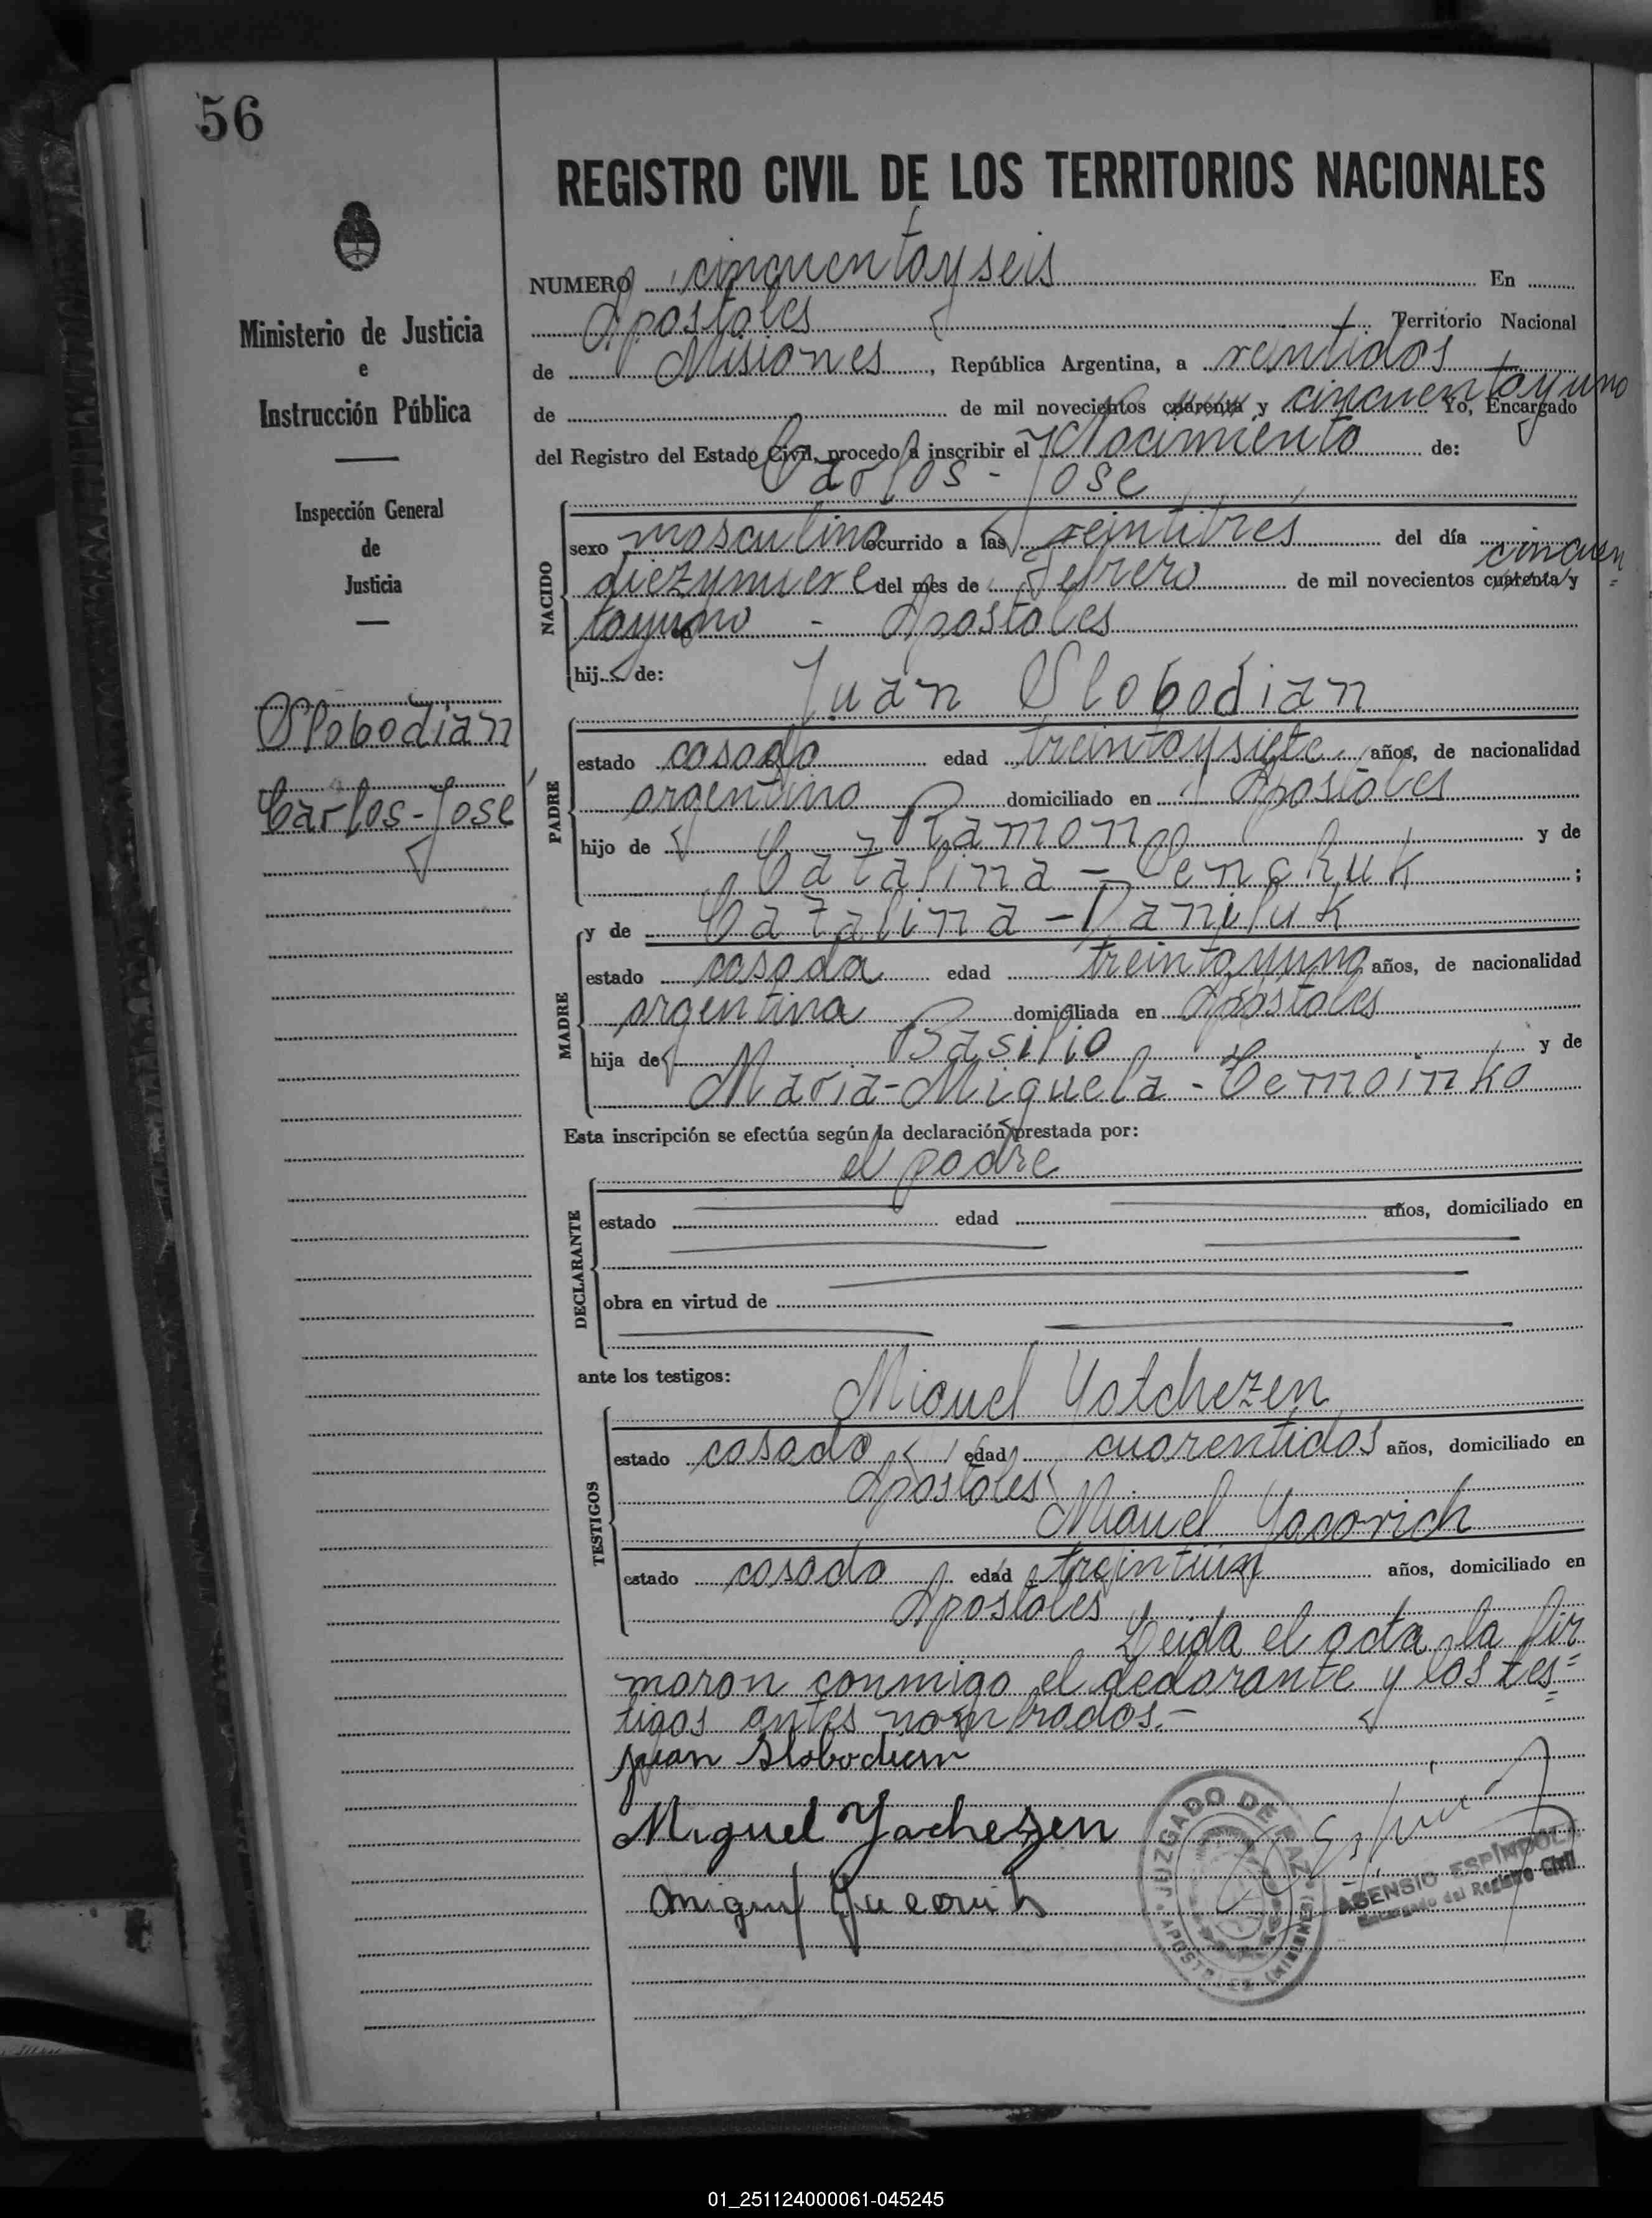 56
REGISTRO CIVIL DE LOS TERRITORIOS NACIONALES
NUMERO cincuentayseis En
Apostoles Territorio Nacional
de Misiones, República Argentina, a veintidos
de de mil novecientos cuarenta y cincuentayuno Yo, Encargado
del Registro del Estado Civil, procedo a inscribir el Nacimiento de:
Carlos - Jose
NACIDO
sexo masculino ocurrido a las veintitres del día
diezynueve del mes de Febrero de mil novecientos cuarenta y cincuen=
tayuno - Apostoles
hij de:
Juan Slobodian
PADRE
estado casado edad treintaysiete años, de nacionalidad
argentino domiciliado en Apostoles
hijo de Ramon y de
Catalina - Cenchuk ;
MADRE
y de Catalina - Daniluk
estado casada edad treintayuno años, de nacionalidad
argentina domiciliada en Apostoles
hija de Basilio y de
Maria-Miguela-
Esta inscripción se efectúa según la declaración prestada por:
el padre
DECLARANTE
estado edad años, domiciliado en
obra en virtud de
ante los testigos:
Miguel Yatchezen
TESTIGOS
estado casado edad cuarentidos años, domiciliado en
Apostoles
Miguel Yacovich
estado casado edad treintiún años, domiciliado en
Apostoles
Leida el acta la fir
maron conmigo el declarante y los tes=
tigos antes nombrados.-
Juan Slobodian
Miguel Yacheszen
Miguel
JUZGADO DE PAZ
APOSTOLES (MISIONES)
ASENSIO ESPÍNDOLA
Encargado del Registro Civil
Ministerio de Justicia
e
Instrucción Pública
Inspección General
de
Justicia
Slobodian
Carlos-Jose
01_251124000061-045245